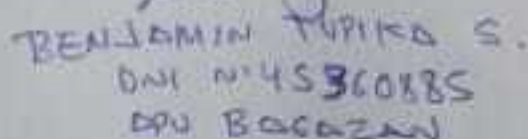 BENJAMIN TUPIKA S.
DNI Nº 45360885
APU BAGAZAN